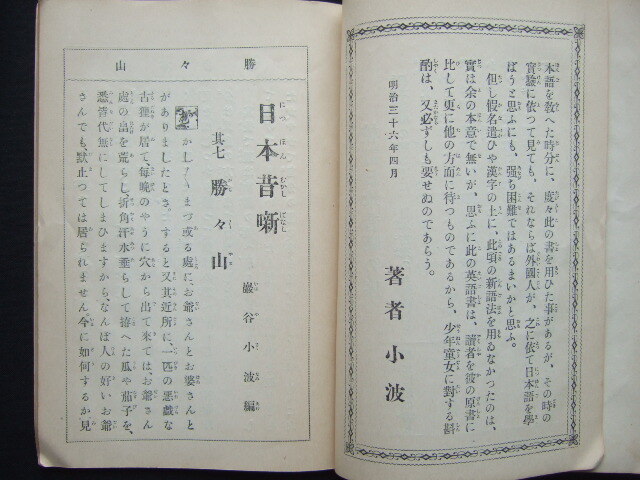 本語を教へた時分に、度々此の書を用ひた事があるが、その時の
實驗に依つて見ても、それならば外國人が、之に依て日本語を學
ばうと思ふにも、强ち困難ではあるまいかと思ふ。
但し假名遣ひや漢字の上に、此頃の新語法を用ゐなかつたのは、
實は余の本意で無いが、思ふに此の英語書は、讀者を彼の原書に
比して更に他の方面に待つものであるから、少年童女に對する斟
酌は、又必ずしも要せぬのであらう。
明治三十六年四月
著者小波
勝々山
日本昔噺
其七 勝々山
巖谷小波編
かし〱まづ或る處に、お爺さんとお婆さんと
がありましたとさ。すると又其近所に、一匹の惡戯な
古狸が居て、每晩のやうに穴から出て來ては、お爺さん
處の畠を荒らし、折角汗水垂らして拵へた瓜や茄子を、
悉皆代無にしてしまひますから、なんぼ人の好いお爺
さんでも、默止つては居られません。今に如何するか見